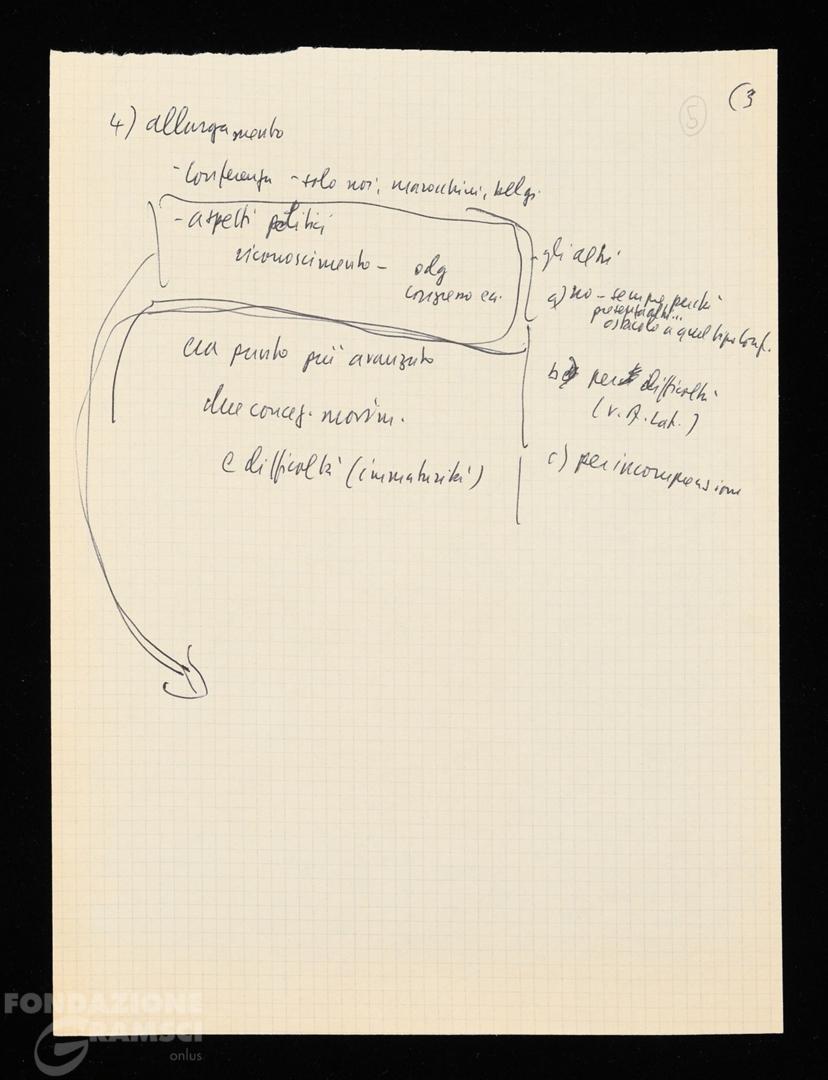 (3
5
4) allargamento
- Conferenza - solo noi, marocchini, belgi.
- aspetti politici
riconoscimento - odg
congresso ea.
un punto più avanzato
due conceg. movim.
e difficoltà (immaturità)
- gli altri
a) no - sempre perché
presentarsi...
ostacolo a quel tipo conf.
b) per difficoltà
(v. A. Lat.)
c) per incomprensioni
FONDAZIONE
GRAMSCI
onlus